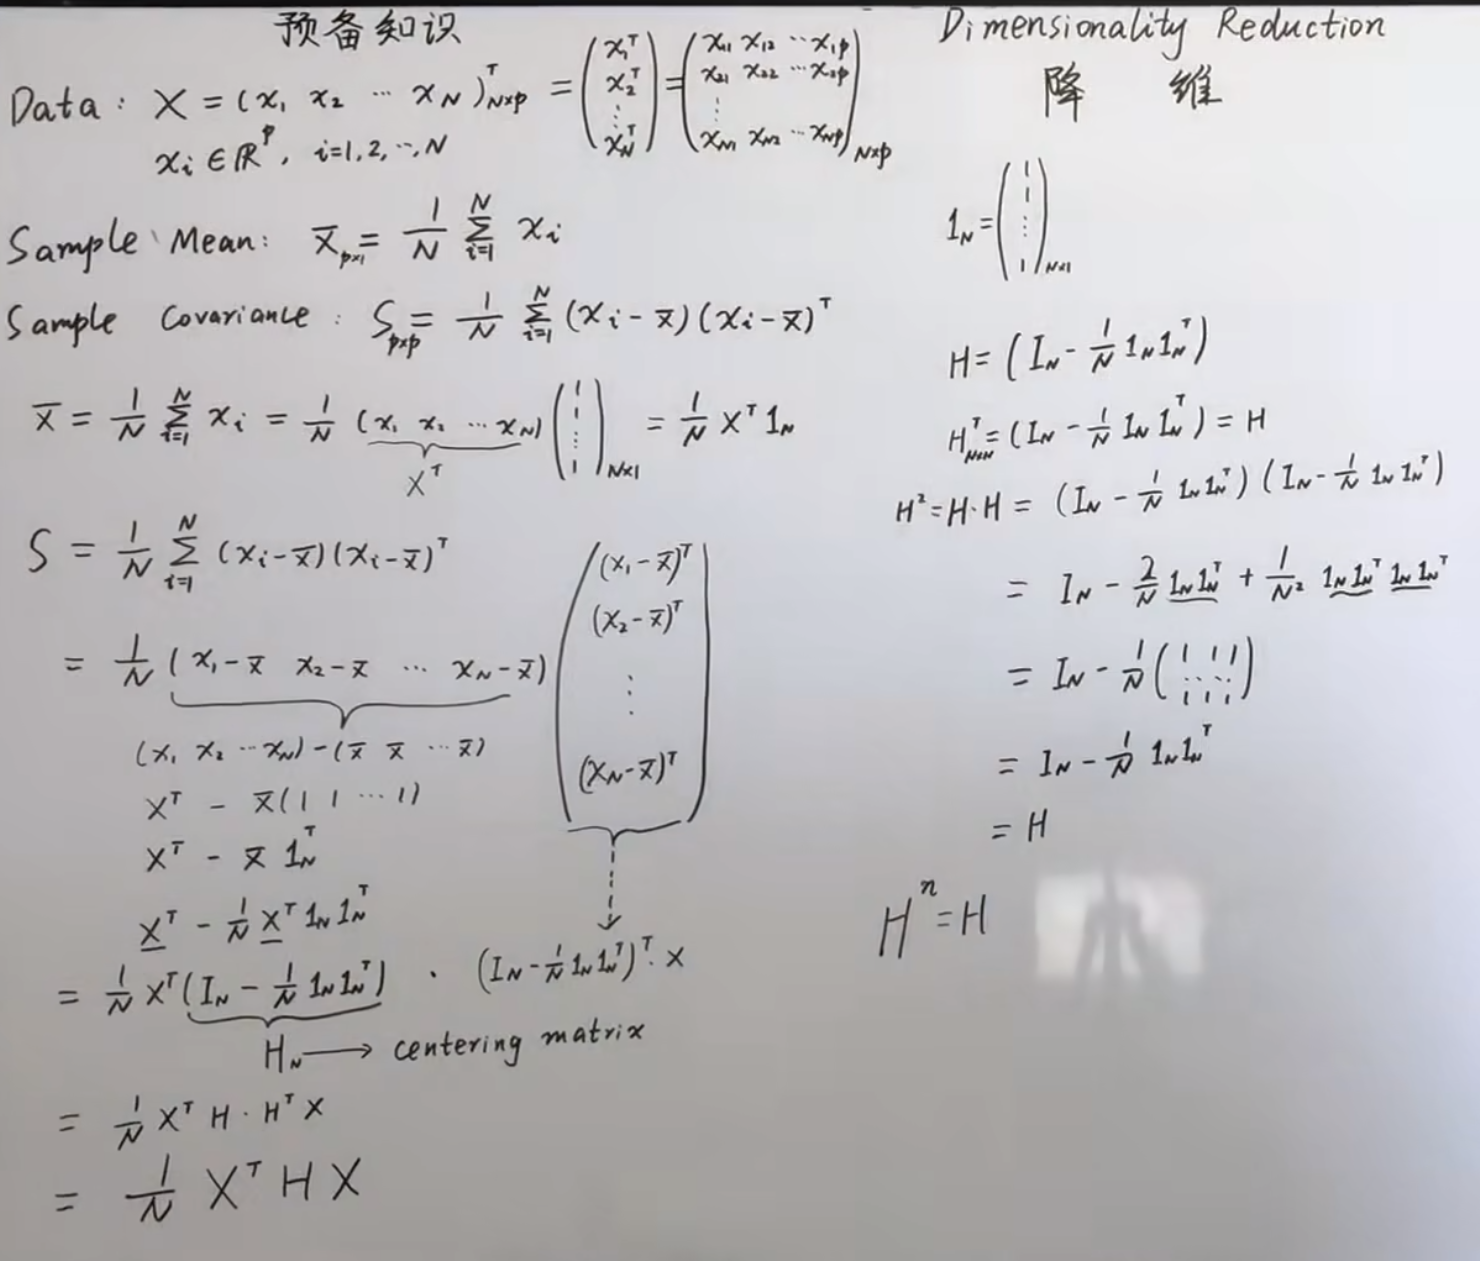 预备知识
Data: X = (x₁ x₂ ⋯ x_N)ᵀ_{N×p} = (x₁ᵀ x₂ᵀ ⋮ x_Nᵀ) = (x₁₁ x₁₂ ⋯ x₁p x₂₁ x₂₂ ⋯ x₂p ⋮ x_N1 x_N2 ⋯ x_Np)_{N×p}
xᵢ ∈ ℝᵖ, i=1,2,⋯,N
Sample Mean: x̄_{p×1} = 1/N Σ_{i=1}^{N} xᵢ
Sample Covariance: S_{p×p} = 1/N Σ_{i=1}^{N} (xᵢ - x̄)(xᵢ - x̄)ᵀ
x̄ = 1/N Σ_{i=1}^{N} xᵢ = 1/N (x₁ x₂ ⋯ x_N) (1 1 ⋮ 1)_{N×1} = 1/N Xᵀ 1_N
Xᵀ
S = 1/N Σ_{i=1}^{N} (xᵢ - x̄)(xᵢ - x̄)ᵀ
= 1/N (x₁ - x̄ x₂ - x̄ ⋯ x_N - x̄) ((x₁ - x̄)ᵀ (x₂ - x̄)ᵀ ⋮ (x_N - x̄)ᵀ)
(x₁ x₂ ⋯ x_N) - (x̄ x̄ ⋯ x̄)
Xᵀ - x̄(1 1 ⋯ 1)
Xᵀ - x̄ 1_Nᵀ
Xᵀ - 1/N Xᵀ 1_N 1_Nᵀ
= 1/N Xᵀ(I_N - 1/N 1_N 1_Nᵀ) · (I_N - 1/N 1_N 1_Nᵀ)ᵀ · X
H_N → centering matrix
= 1/N Xᵀ H · Hᵀ X
= 1/N Xᵀ H X
Dimensionality Reduction
降 维
1_N = (1 1 ⋮ 1)_{N×1}
H = (I_N - 1/N 1_N 1_Nᵀ)
Hᵀ_{N×N} = (I_N - 1/N 1_N 1_Nᵀ) = H
H² = H·H = (I_N - 1/N 1_N 1_Nᵀ)(I_N - 1/N 1_N 1_Nᵀ)
= I_N - 2/N 1_N 1_Nᵀ + 1/N² 1_N 1_Nᵀ 1_N 1_Nᵀ
= I_N - 1/N (1 1 1 ⋯ 1 1 1)
= I_N - 1/N 1_N 1_Nᵀ
= H
Hⁿ = H